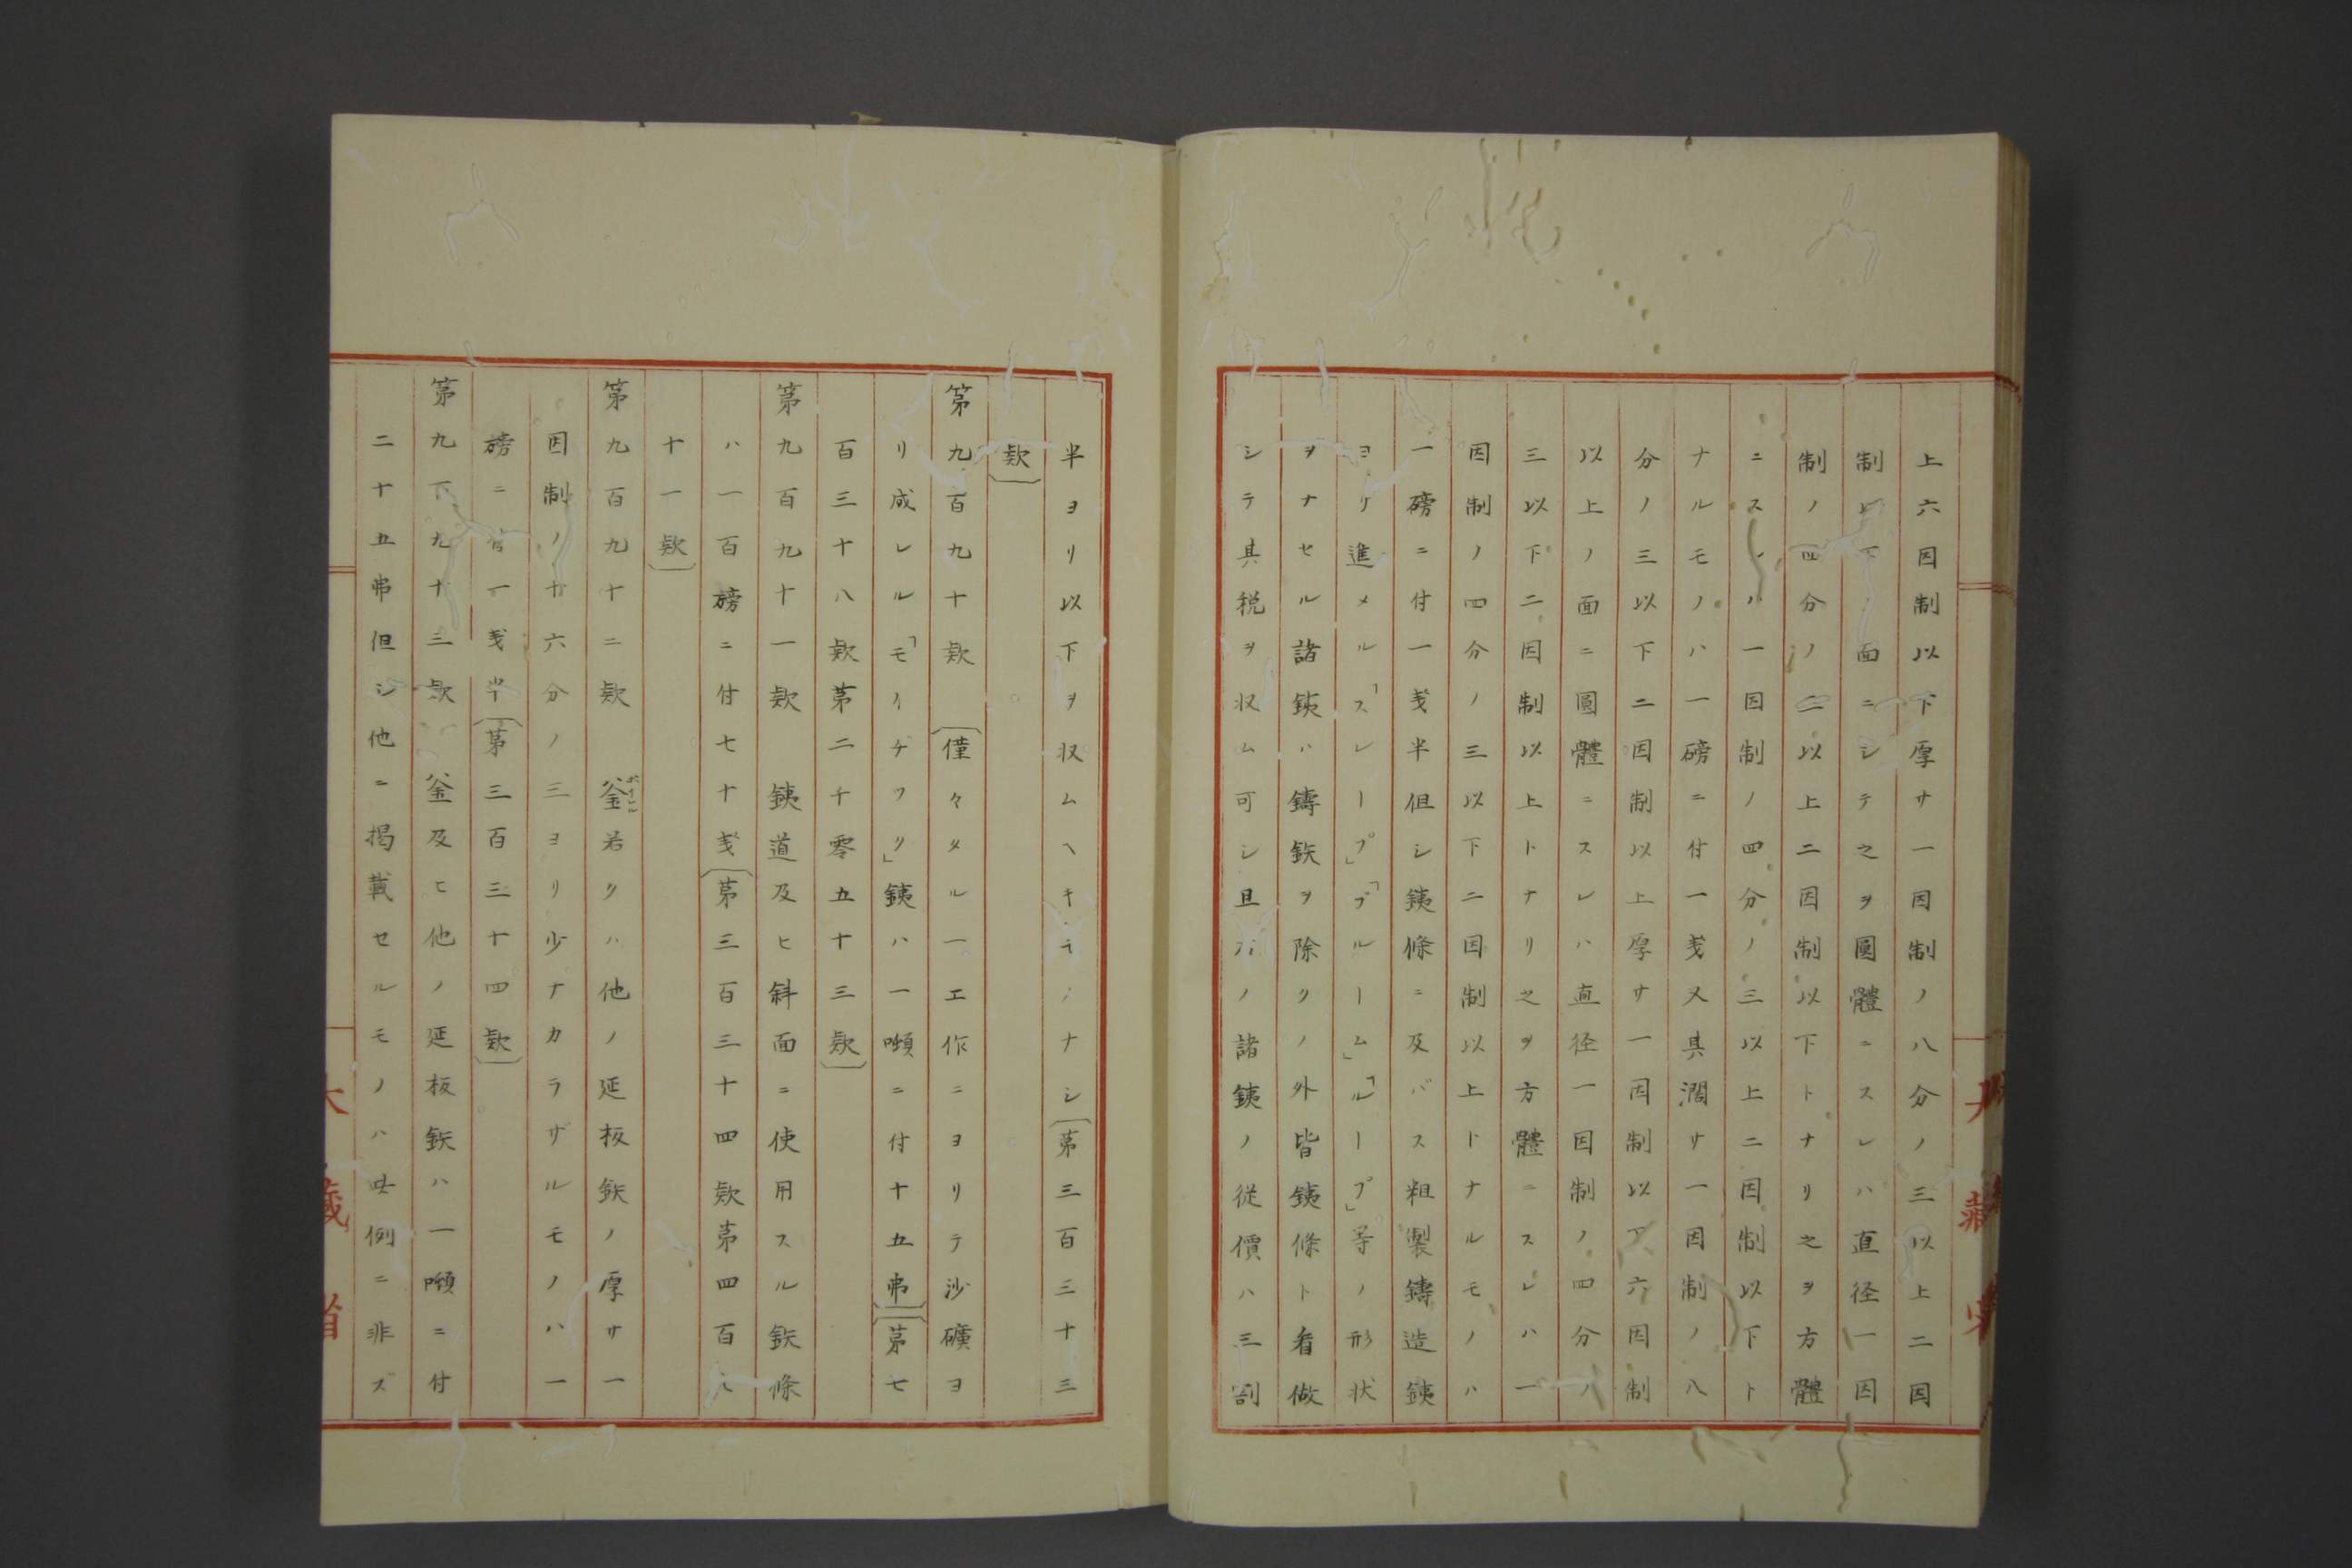 上六因制以下厚サ一因制ノ八分ノ三以上二因
制以下ノ面ニシテ之ヲ圓體ニスレハ直径一因
制ノ四分ノ三以上二因制以下トナリ之ヲ方體
ニスレハ一因制ノ四分ノ三以上二因制以下ト
ナルモノハ一磅ニ付一戔又其濶サ一因制ノ八
分ノ三以下二因制以上厚サ一因制以下六因制
以上ノ面ニ圓體ニスレハ直径一因制ノ四分ノ
三以下二因制以上トナリ之ヲ方體ニスレハ一
因制ノ四分ノ三以下二因制以上トナルモノハ
一磅ニ付一戔半但シ銕條ニ及バス粗製鑄造銕
ヨリ進メル「スレープ」「ブルーム」「ループ」等ノ形状
ヲナセル諸銕ハ鑄鉄ヲ除クノ外皆銕條ト看做
シテ其税ヲ収ム可シ且ハノ諸銕ノ從價ハ三割
半ヨリ以下ヲ収ムヘキモノナシ(第三百三十三
款)
第九百九十款 (僅々タル一工作ニヨリテ沙礦ヨ
リ成レルル「モイチツリ」銕ハ一噸ニ付十五弗)(第七
百三十八款第二千零五十三款)
第九百九十一款 銕道及ヒ斜面ニ使用スル鉄條
ハ一百磅ニ付七十戔(第三百三十四款第四百八
十一款)
第九百九十二款 釜若クハ他ノ延板鉄ノ厚サ一
ボイレル
因制ノ十六分ノ三ヨリ少ナカラザルモノハ一
磅ニ付一戔半(第三百三十四款)
第九百九十三款 釜及ヒ他ノ延板鉄ハ一噸ニ付
二十五弗但シ他ニ掲載セルモノハ此例ニ非ズ
大藏省